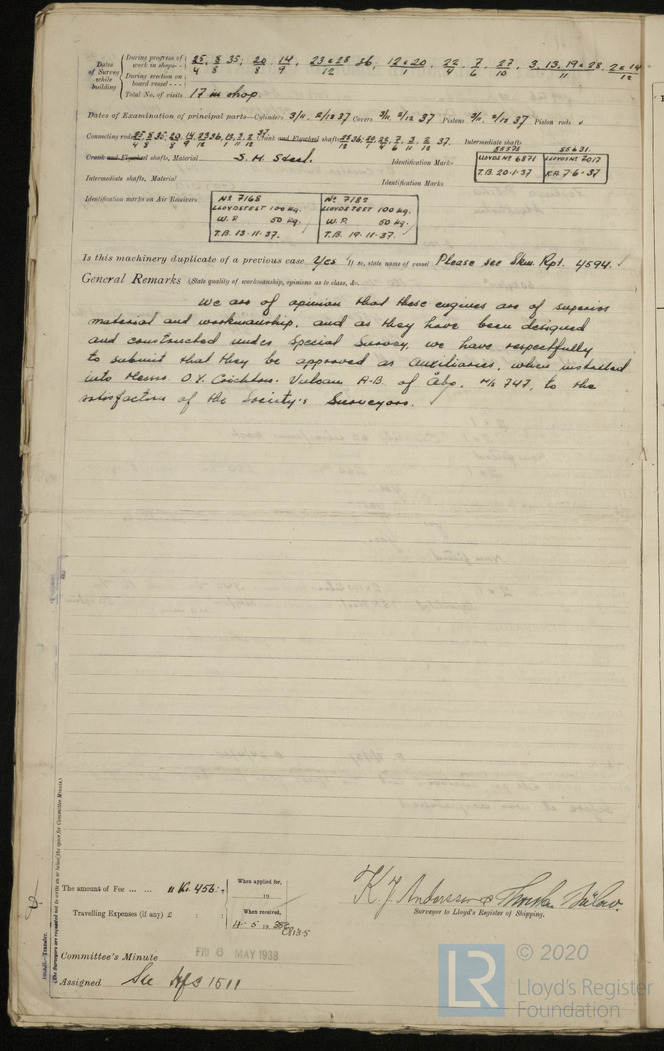 Dates of Survey while building
During progress of work in shops - - 25/4 8/8 35, 20/8 14/9, 23 & 28/12 36, 12 & 20/1, 22/4 7/6 27/10, 3, 13, 19 & 28/11, 2 & 14/12
During erection on board vessel - - -
Total No. of visits 17 in shop.
Dates of Examination of principal parts—Cylinders 3/11, 2/12 37 Covers 3/11, 2/12 37 Pistons 3/11, 2/12 37 Piston rods
Connecting rods 37 Crank and Flywheel shafts 37. Intermediate shafts
Crank and Flywheel shafts, Material S. M. Steel. Identification Marks
85575 85631.
LLOYDS Nº 6871 LLOYDS Nº 2017
T.B. 20-1-37 K.A. 7-6-37
Intermediate shafts, Material Identification Marks
Identification marks on Air Receivers
Nº 7168 Nº 7182
LLOYDS TEST 100 kg. LLOYDS TEST 100 kg.
W.P. 50 kg. W.P. 50 kg.
T.B. 13-11-37. T.B. 19-11-37.
Is this machinery duplicate of a previous case Yes If so, state name of vessel Please see Skm. Rpt. 4594.
General Remarks (State quality of workmanship, opinions as to class, &c.
We are of opinion that these engines are of superior
material and workmanship, and as they have been designed
and constructed under Special Survey, we have respectfully
to submit that they be approved as auxiliaries, when installed
into Messrs. O.Y. Crichton-Vulcan A-B. of Åbo. No 747, to the
satisfaction of the Society's Surveyors.
The amount of Fee ... ... Kr. 456:-
When applied for,
19
Travelling Expenses (if any) £ : :
When received,
4. 5. 19 38
K. J. Andersson &
Surveyor to Lloyd's Register of Shipping.
Committee's Minute FRI 6 MAY 1938
Assigned See
(The Surveyors are requested not to write on or below the space for Committee's Minute.)
© 2020
LR
Lloyd's Register
Foundation